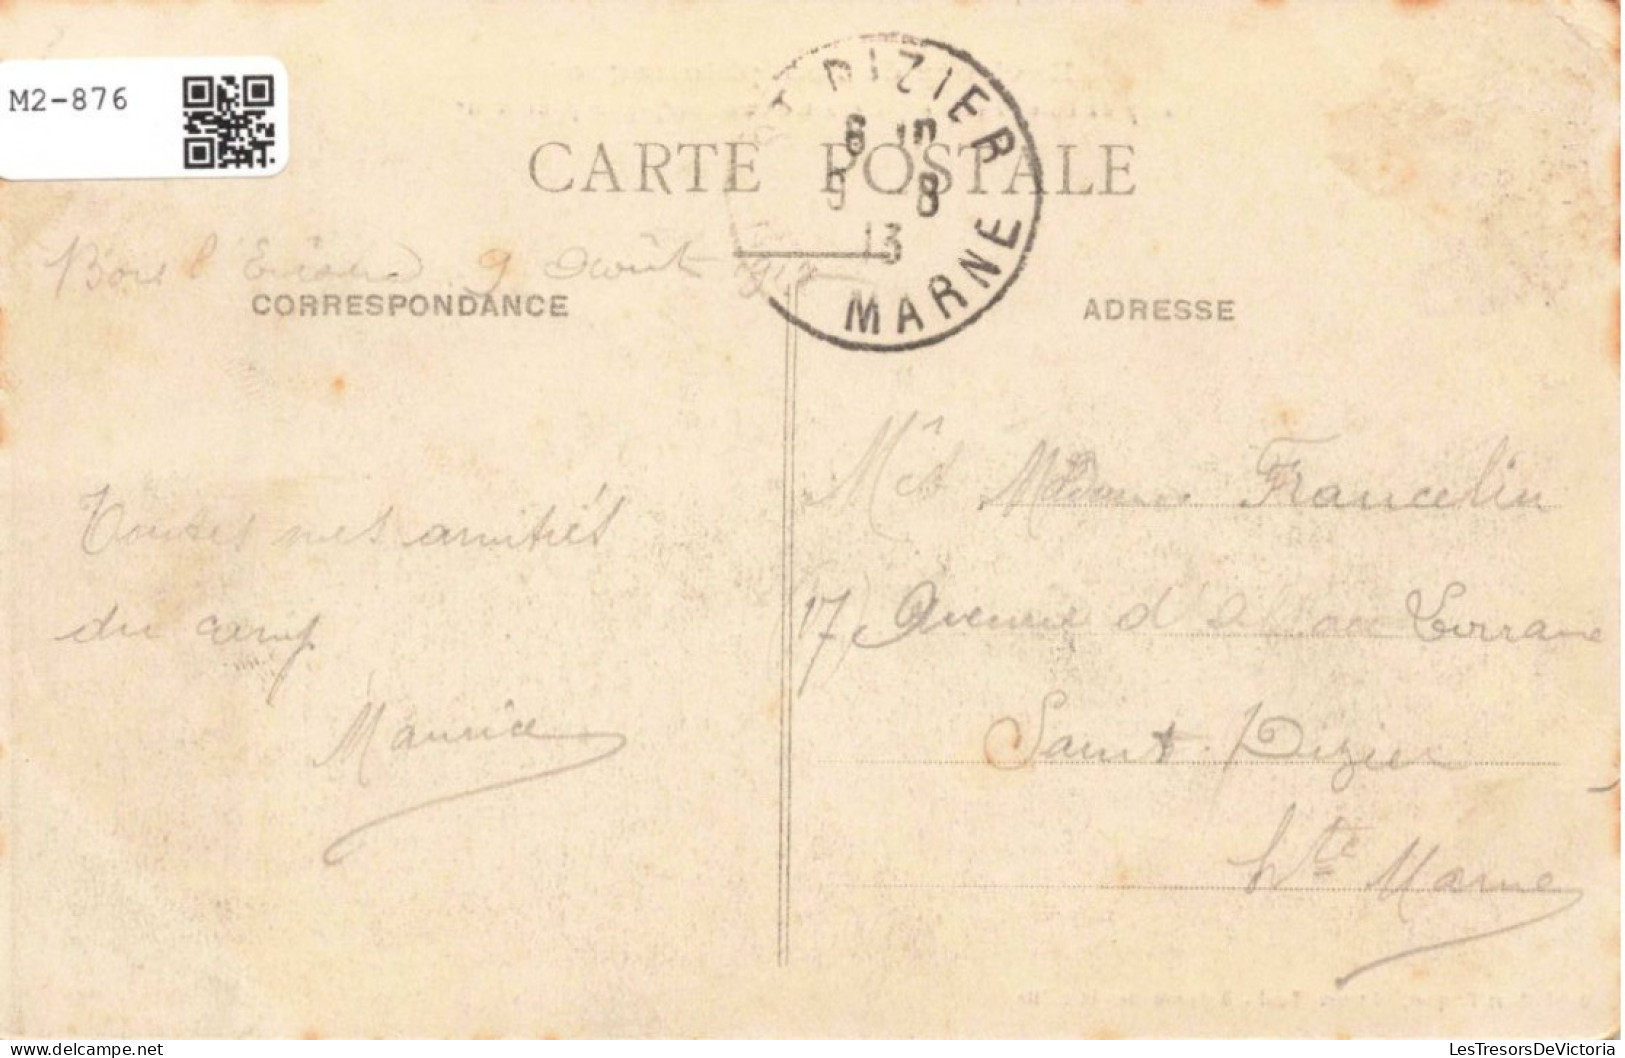 M2-876
DIZIER
6 15
9 8
13
MARNE
CARTE POSTALE
9 Août 1913
CORRESPONDANCE
ADRESSE
Toutes mes amitiés
du camp
Maurice
Mr et Madame Francelin
17 Avenue d'Alsace Lorraine
Saint-Dizier
Hte Marne
LesTresorsDeVictoria
delcampe.net